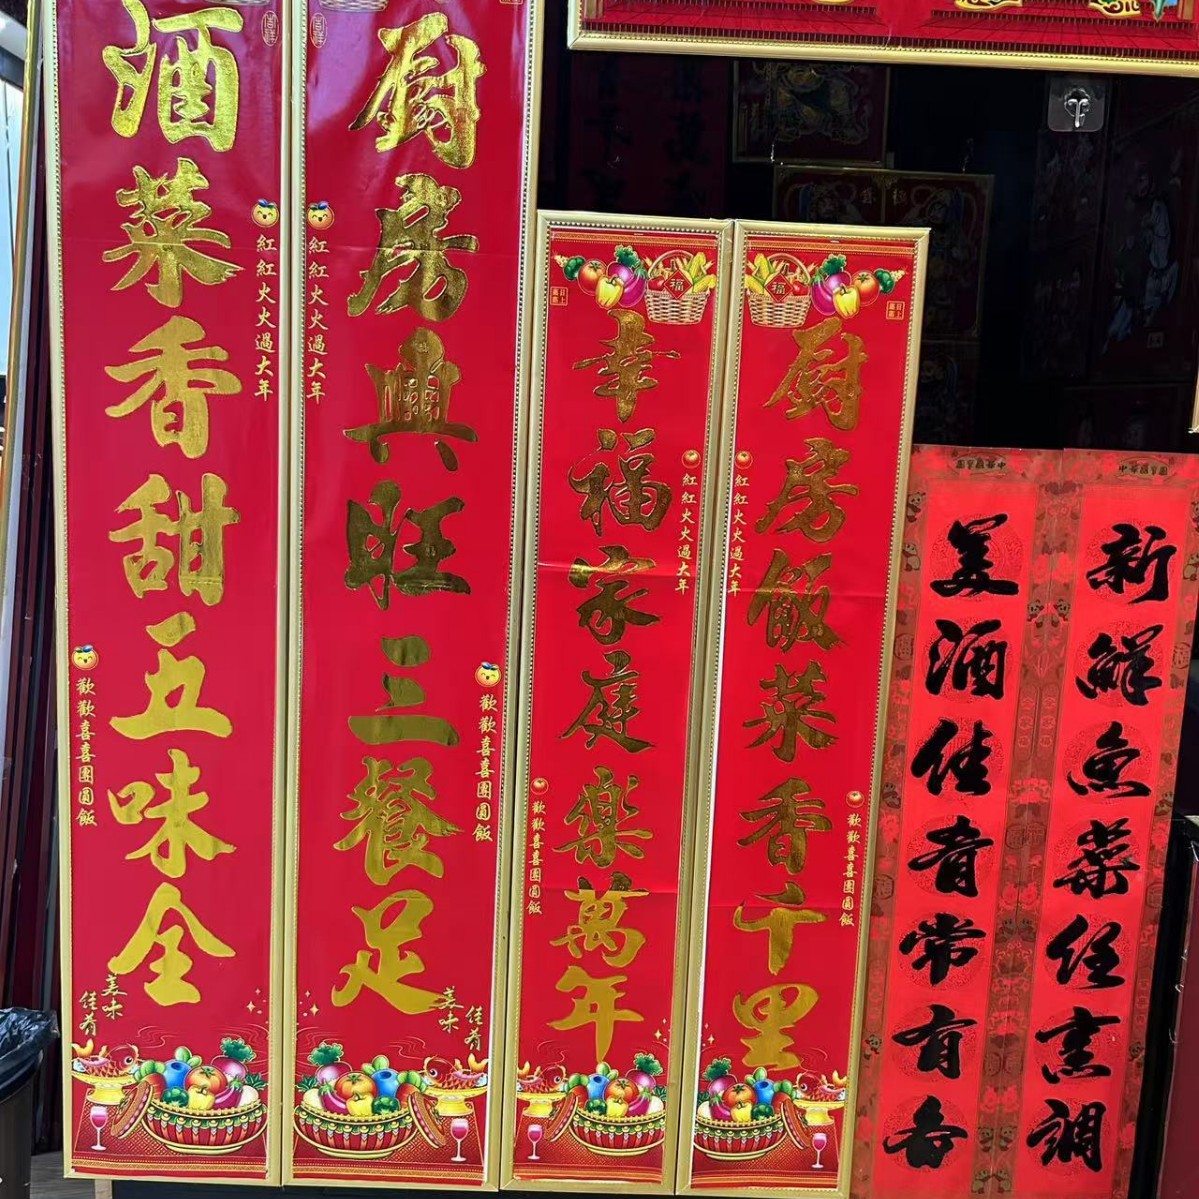 厨房興旺三餐足
紅紅火火過大年
歡歡喜喜團圓飯
美味
佳肴
酒菜香甜五味全
紅紅火火過大年
歡歡喜喜團圓飯
美味
佳肴
厨房飯菜香千里
福
紅紅火火過大年
歡歡喜喜團圓飯
幸福家庭樂萬年
福
紅紅火火過大年
歡歡喜喜團圓飯
新鮮魚菜任烹調
美酒佳肴常有备